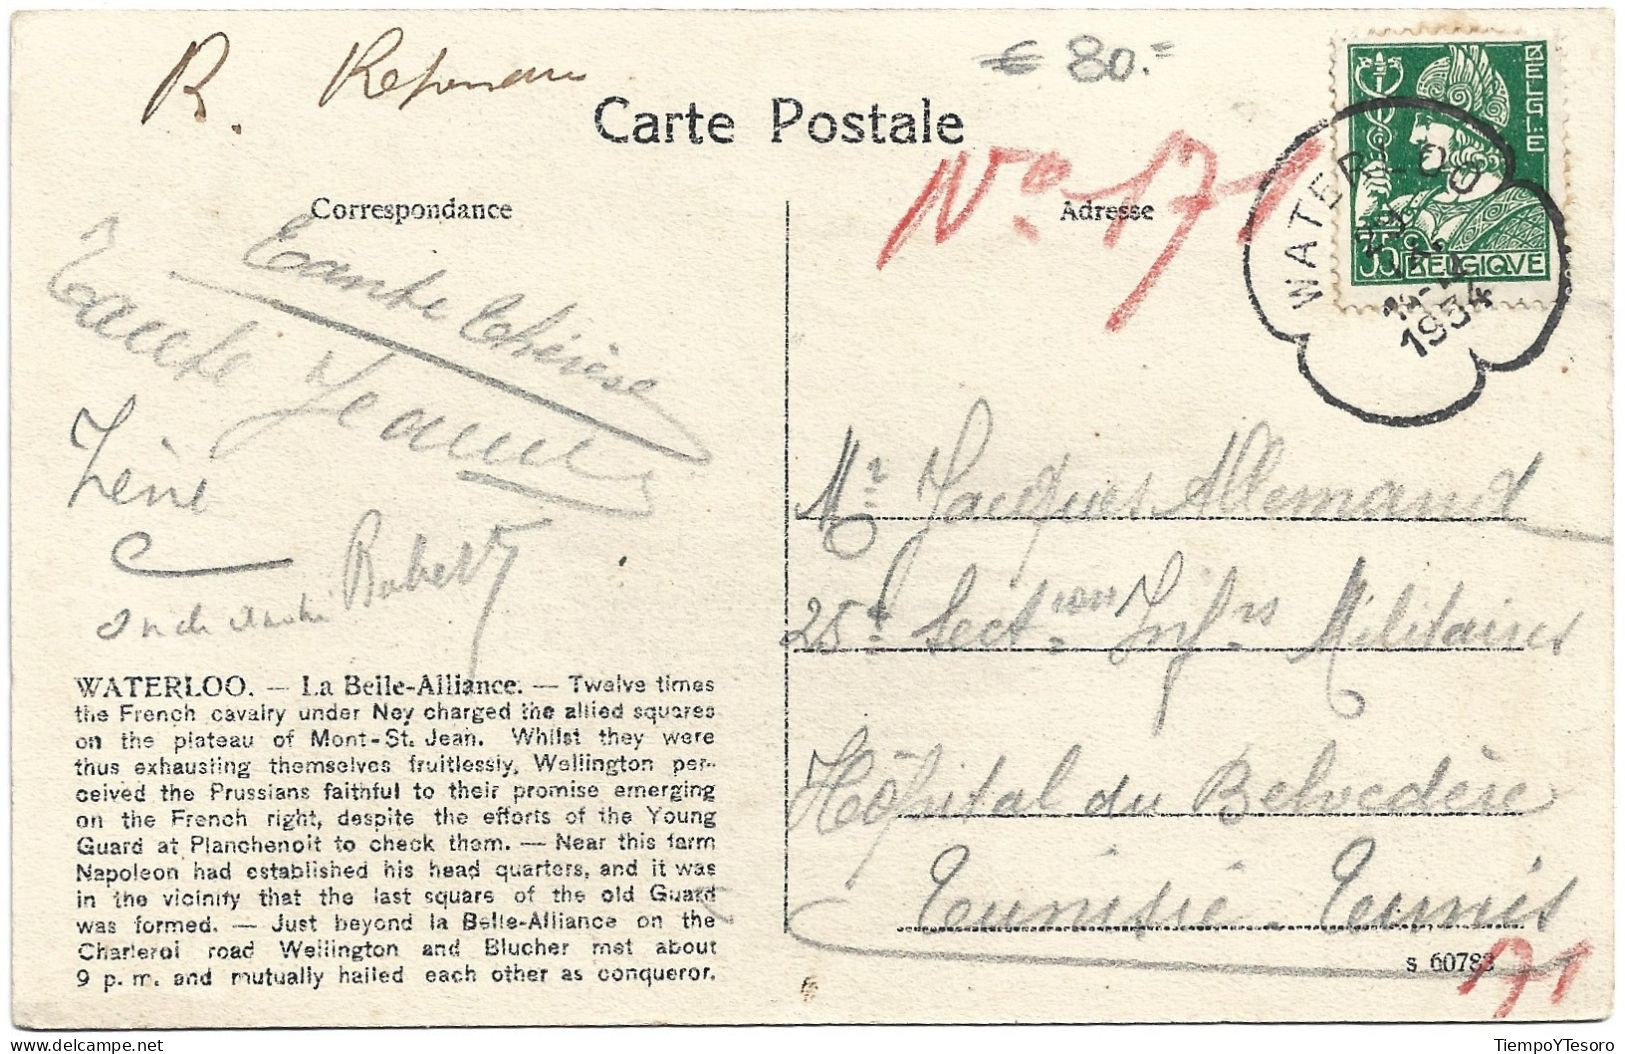 R.
€ 80.=
Carte Postale
Nº 171
Correspondance
Adresse
BELGIE
35c
BELGIQUE
WATERLOO
1934
Tante Thérèse
Tante Jeanne
Irène
Robert
Mr Jacques Allemand
25e Section Infrs Militaires
Hôpital du Belvedère
Tunisie - Tunis
WATERLOO. — La Belle-Alliance. — Twelve times
the French cavalry under Ney charged the allied squares
on the plateau of Mont-St. Jean. Whilst they were
thus exhausting themselves fruitlessly, Wellington per-
ceived the Prussians faithful to their promise emerging
on the French right, despite the efforts of the Young
Guard at Planchenoit to check them. — Near this farm
Napoleon had established his head quarters, and it was
in the vicinity that the last square of the old Guard
was formed. — Just beyond la Belle-Alliance on the
Charleroi road Wellington and Blucher met about
9 p. m. and mutually hailed each other as conqueror.
s 60783
171
delcampe.net
TiempoYTesoro